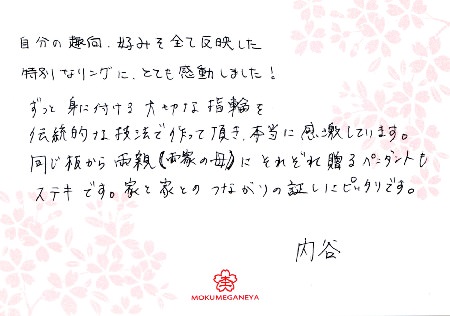 自分の趣向、好みを全て反映した
特別なリングに、とても感動しました!
ずっと身に付ける大切な指輪を
伝統的な技法で作って頂き、本当に感激しています。
同じ板から両親(両家の母)にそれぞれ贈るペンダントも
ステキです。家と家とのつながりの証しにピッタリです。
内谷
MOKUMEGANEYA